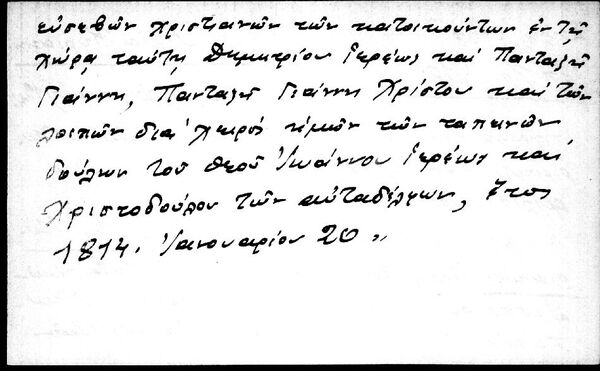 εὐσεβῶν χριστιανῶν τῶν κατοικούντων ἐν τῇ
χώρᾳ ταύτῃ Δημητρίου Ἱερέως καὶ Πανταζῆ
Γιάννη, Πανταζῆ Γιάννη Χρίστου καὶ τῶν
λοιπῶν διὰ χειρὸς ἡμῶν τῶν ταπεινῶν
δούλων τοῦ Θεοῦ Ἰωάννου Ἱερέως καὶ
Χριστοδούλου τῶν αὐταδέλφων, ἔτος
1814. Ἰανουαρίου 20 „